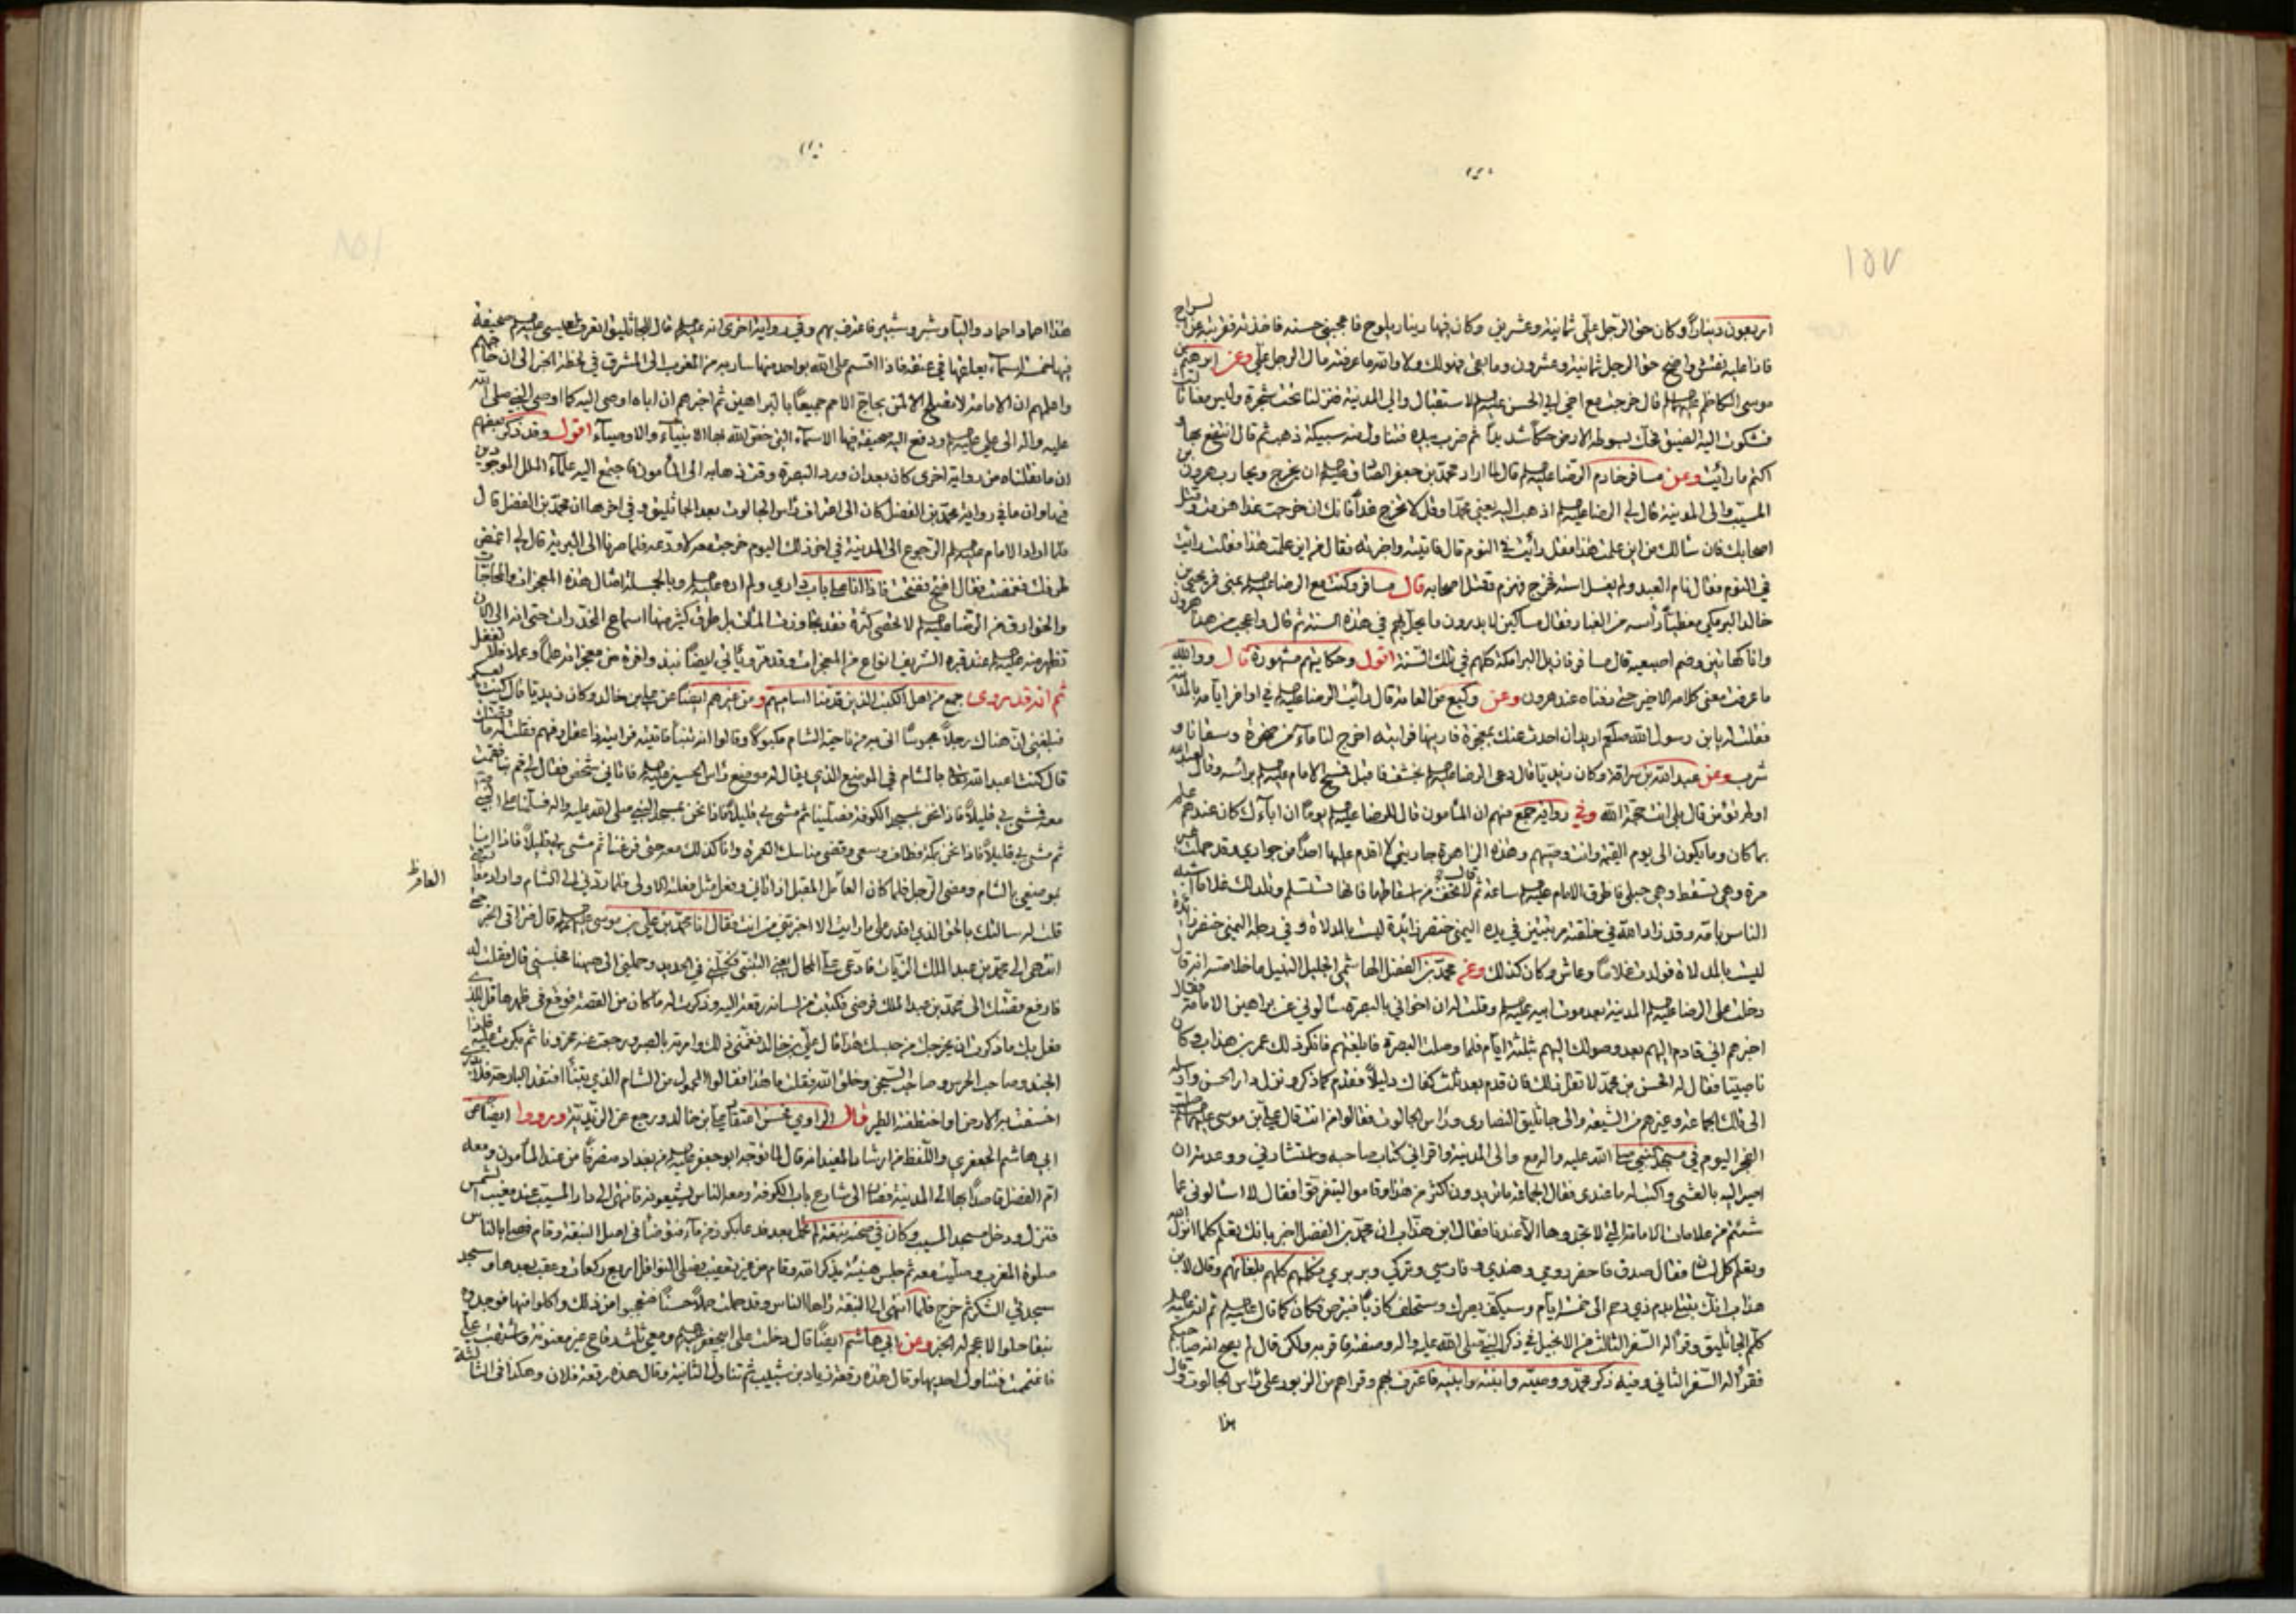 ١٥٧
اربعون دينارا وكان حق الرجل علي ثمانية وعشرين وكان فيها دينار يلوح فاعجبني حسنه فاخذته فقربته من السراج
فاذا عليه نقش واضح حق الرجل ثمانية وعشرون وما بقي فهو لك ولا والله ما عرفت مال الرجل علي وعن ابراهيم بن
موسى الكاظم عليهما السلم قال خرجت مع اخي ابي الحسن عليه السلم لاستقبال والي المدينة فنزلنا تحت شجرة وليس معنا ثالث
فشكوت اليه الضيق فحك بسوطه الارض حكا شديدا ثم ضرب بيده فتناول منه سبيكة ذهب ثم قال انتفع بها و
اكتم ما رأيت وعن مسافر خادم الرضا عليه السلم قال لما اراد محمد بن جعفر الصادق عليه السلم ان يخرج ويحارب هرون بن
المسيب والي المدينة قال لي الرضا عليه السلم اذهب اليه يعني محمدا وقل لا تخرج غدا فانك ان خرجت غدا هزمت وقتل
اصحابك فان سالك من اين علمت هذا فقل رأيت في النوم قال فاتيته واخبرته فقال من اين علمت هذا فقلت رأيت
في النوم فقال نام العبد ولم يغسل استه فخرج فهزم وقتل اصحابه قال مسافر وكنت مع الرضا عليه السلم بمنى فمر يحيى بن
خالد البرمكي مغطيا رأسه من الغبار فقال مساكين لا يدرون ما يحل بهم في هذه السنة ثم قال واعجب من هذا هرون
وانا كهاتين وضم اصبعيه قال مسافر فانزل البرامكة كلهم في تلك السنة اقول وحكايتهم مشهورة قال ووالله
ما عرفت معنى كلامه الاخير حتى دفناه عند هرون وعن وكيع من العامة قال رأيت الرضا عليه السلم في اواخر ايامه بالمدينة
فقلت له يا بن رسول الله صلعم اريد ان احدث عنك بمعجزة فارنيها فرأيته اخرج لنا ماء من صخرة وسقانا و
شرب وعن عبد الله بن سراقة وكان زيديا قال دعى الرضا عليه السلم بخشف فاقبل فمسح الامام عليه السلم برأسه وقال لعبد الله
اولم تؤمن قال بلى انت حجة الله وفي رواية جمع منهم ان المأمون قال للرضا عليه السلم يوما ان اباءك كان عندهم علم
بما كان وما يكون الى يوم القيمة وانت وصيهم وهذه الزاهرة جاريتي لا اقدم عليها احدا من جواري وقد حملت غير
مرة وهي تسقط وهي حبلى فاطرق الامام عليه السلم ساعة ثم قال لا تخف من اسقاطها فانها ستسلم وتلد لك غلاما اشبه
الناس بامه وقد زاد الله في خلقته مرتبتين في يده اليمنى خنصر زائدة ليست بالمدلاة وفي رجله اليمنى خنصر زائدة
ليست بالمدلاة فولدت غلاما وعاش وكان كذلك وعن محمد بن الفضل الهاشمي الجليل النبيل ما خلاصته انه قال
دخلت على الرضا عليه السلم المدينة بعد موت ابيه عليه السلم وقلت له ان اخواني بالبصرة سألوني عن براهين الامامة فقال
اخبرهم اني قادم اليهم بعد وصولك اليهم بثلثة ايام فلما وصلت البصرة فابلغتهم فانكر ذلك عمر بن هذاب وكان
ناصبيا فقال له الحسن بن محمد لا تقل ذلك فان قدم بعد ثلث كفاك دليلا فقدم كما ذكر ونزل دار الحسن وارسل
الى تلك الجماعة وغيرهم من الشيعة والى جاثليق النصارى ورأس الجالوت فقالوا من انت قال علي بن موسى عليهما السلم صليت
الفجر اليوم في مسجد النبي صلى الله عليه واله مع والي المدينة واقراني كتاب صاحبه واستشارني ووعدته ان
اصير اليه بالعشي واكتب له ما عندي فقال الجماعة ما نريد دون اكثر من هذا وقاموا ليتفرقوا فقال لا اسالوني عما
شئتم من علامات الامامة التي لا تجدوها الا عندنا فقال ابن هذاب ان محمد بن الفضل اخبرنا انك تعلم كلما انزل الله
وتعلم كل لسان فقال صدق فاحضر رومي وهندي وفارسي وتركي وبربري فتكلمهم كلهم بلغاتهم وقال لابن
هذاب انك تبتلى بدم ذي رحم الى خمسة ايام وسيكف بصرك وستحلف كاذبا فتبرص فكان كما قال عليه السلم ثم انه عليه السلم
كلم الجاثليق وقرأ له السفر الثالث من الانجيل في ذكر النبي صلى الله عليه واله وصفته فاقر به ولكن قال لم يصح انه صاحبكم
فقرأ له السفر الثاني وفيه ذكر محمد ووصيه وابنته وابنيه فاعترف بهم وقرأهم من الزبور على رأس الجالوت وقال
هذا
١٥٨
هذا احماد احماد واليا وشبر وشبير فاعترف بهم وفي رواية اخرى انه عليه السلم قال للجاثليق اتعرف لعيسى عليه السلم صحيفة
فيها خمسة اسماء يعلقها في عنقه فاذا اقسم على الله بواحد منها سار به من المغرب الى المشرق في لحظة الخبر الى ان حاجهم
واعلمهم ان الامامة لا تصلح الا لمن يحاج الامم جميعا بالبراهين ثم اخبرهم ان اباه اوصى اليه كما اوصى النبي صلى الله
عليه واله الى علي عليه السلم ودفع اليه صحيفة فيها الاسماء التي خص الله بها الانبياء والاوصياء اقول وقد ذكر بعضهم
ان ما نقلناه من رواية اخرى كان بعد ان ورد البصرة وقت ذهابه الى المأمون فاجتمع اليه علماء الملل الموجودين
فيها وان ما في رواية محمد بن الفضل كان الى اعتراف رأس الجالوت بعد الجاثليق وفي اخرها ان محمد بن الفضل قال
فلما اراد الامام عليه السلم الرجوع الى المدينة في اخر ذلك اليوم خرجت معه لاودعه فلما صرنا الى البرية قال لي اغمض
طرفك فغمضت فقال افتح ففتحت فاذا انا على باب داري ولم اره عليه السلم وبالجملة امثال هذه المعجزات والحاجات
والخوارق من الرضا عليه السلم لا تحصى كثرة فقد تجاوزت المئات بل طرف كثير منها اسماع المخدرات حتى انه الى الان
تظهر منه عليه السلم عند قبره الشريف انواع من المعجزات وقد مر ويأتي ايضا نبذ وافرة من معجزاته علما وعملا فلا تغفل
ثم انه قد روى جمع من اهل الكتب الذين قدمنا اساميهم ومن غيرهم ايضا عن علي بن خالد وكان زيديا قال كنت بالعسكر
فبلغني ان هناك رجلا محبوسا اتي به من ناحية الشام مكبولا وقالوا انه تنبأ فاتيته فرأيته ذا عقل وفهم فقلت له ما قصتك
قال كنت اعبد الله تعالى بالشام في الموضع الذي يقال له موضع رأس الحسين عليه السلم فاتاني شخص فقال لي قم بنا فقمت
معه فمشى بي قليلا فاذا نحن بمسجد الكوفة فصلينا ثم مشى بي قليلا فاذا نحن بمسجد النبي صلى الله عليه واله فسلمنا على النبي
ثم مشى بي قليلا فاذا نحن بمكة فطاف وسعى وقضى مناسك العمرة وانا كذلك معه حتى فرغنا ثم مشى بي قليلا فاذا انا
بموضعي بالشام ومضى الرجل فلما كان العام المقبل اذ اتاني وفعل مثل فعلته الاولى فلما ردني الى الشام واراد مفارقتي
قلت له سالتك بالحق الذي اقدرك على ما رأيت الا اخبرتني من انت فقال انا محمد بن علي بن موسى عليه السلم قال فتراقى الخبر حتى
انتهى الى محمد بن عبد الملك الزيات فادعى علي المحال يعني التنبي وكبلني في الحديد وحملني الى ههنا فحبسني قال فقلت له
فارفع قصتك الى محمد بن عبد الملك فرضي فكتبت من لسانه رقعة اليه وذكرت له ما كان من القصة فوقع في ظهرها قل للذي
فعل بك ما ذكرت ان يخرجك من حبسك هذا قال علي بن خالد فغمني ذلك وامرته بالصبر ورجعت عنه محزونا ثم بكرت عليه فاذا
الجند وصاحب الحرس وصاحب السجن وخلق الله فقلت ما هذا فقالوا المحمول من الشام الذي تنبأ افتقد البارحة فلا ندري
اخسفت به الارض او اختطفته الطير قال الراوي فحسن اعتقاد علي بن خالد ورجع عن الزيدية ورووا ايضا عن
ابي هاشم الجعفري واللفظ من ارشاد المفيد انه قال لما توجه ابو جعفر عليه السلم من بغداد منصرفا من عند المأمون ومعه
ام الفضل قاصدا بها الى المدينة فصار الى شارع باب الكوفة ومعه الناس يشيعونه فانتهى الى دار المسيب عند مغيب الشمس
فنزل ودخل مسجد المسيب وكان في صحنه نبقة لم تحمل بعد فدعا بكوز من ماء فتوضأ في اصل النبقة وقام فصلى بالناس
صلوة المغرب وصليت معه ثم جلس هنيئة يذكر الله وقام من غير تعقيب فصلى النوافل اربع ركعات وعقب بعدها وسجد
سجدتي الشكر ثم خرج فلما انتهى الى النبقة رآها الناس وقد حملت حملا حسنا فتعجبوا من ذلك واكلوا منها فوجدوه
نبقا حلوا لا عجم له الخبر وعن ابي هاشم ايضا قال دخلت على ابي جعفر عليه السلم ومعي ثلث رقاع غير معنونة واشتبهت علي
فاغتممت فتناول احديها وقال هذه رقعة زياد بن شبيب ثم تناول الثانية وقال هذه رقعة فلان وهكذا في الثالثة